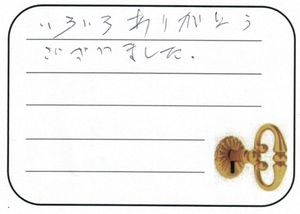 いろいろありがとう
ございました.